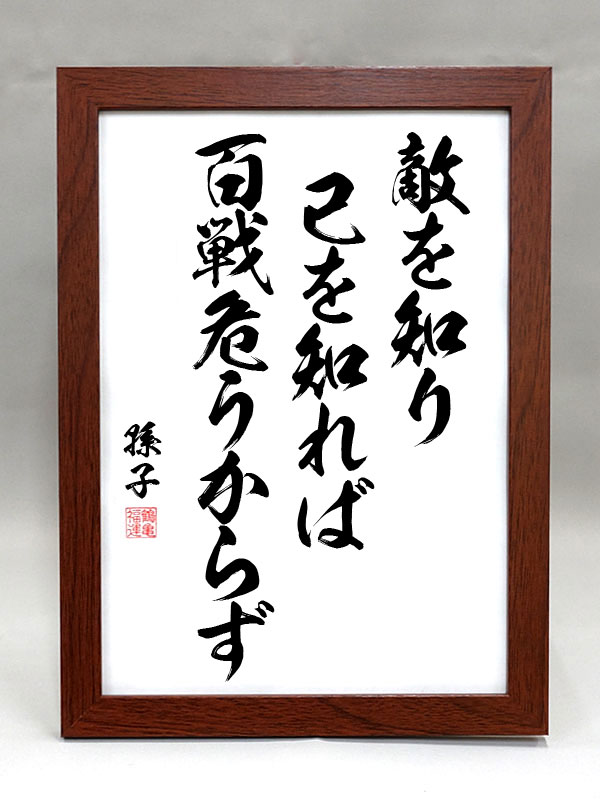 敵を知り
己を知れば
百戦危うからず
孫子
鶴亀
福運